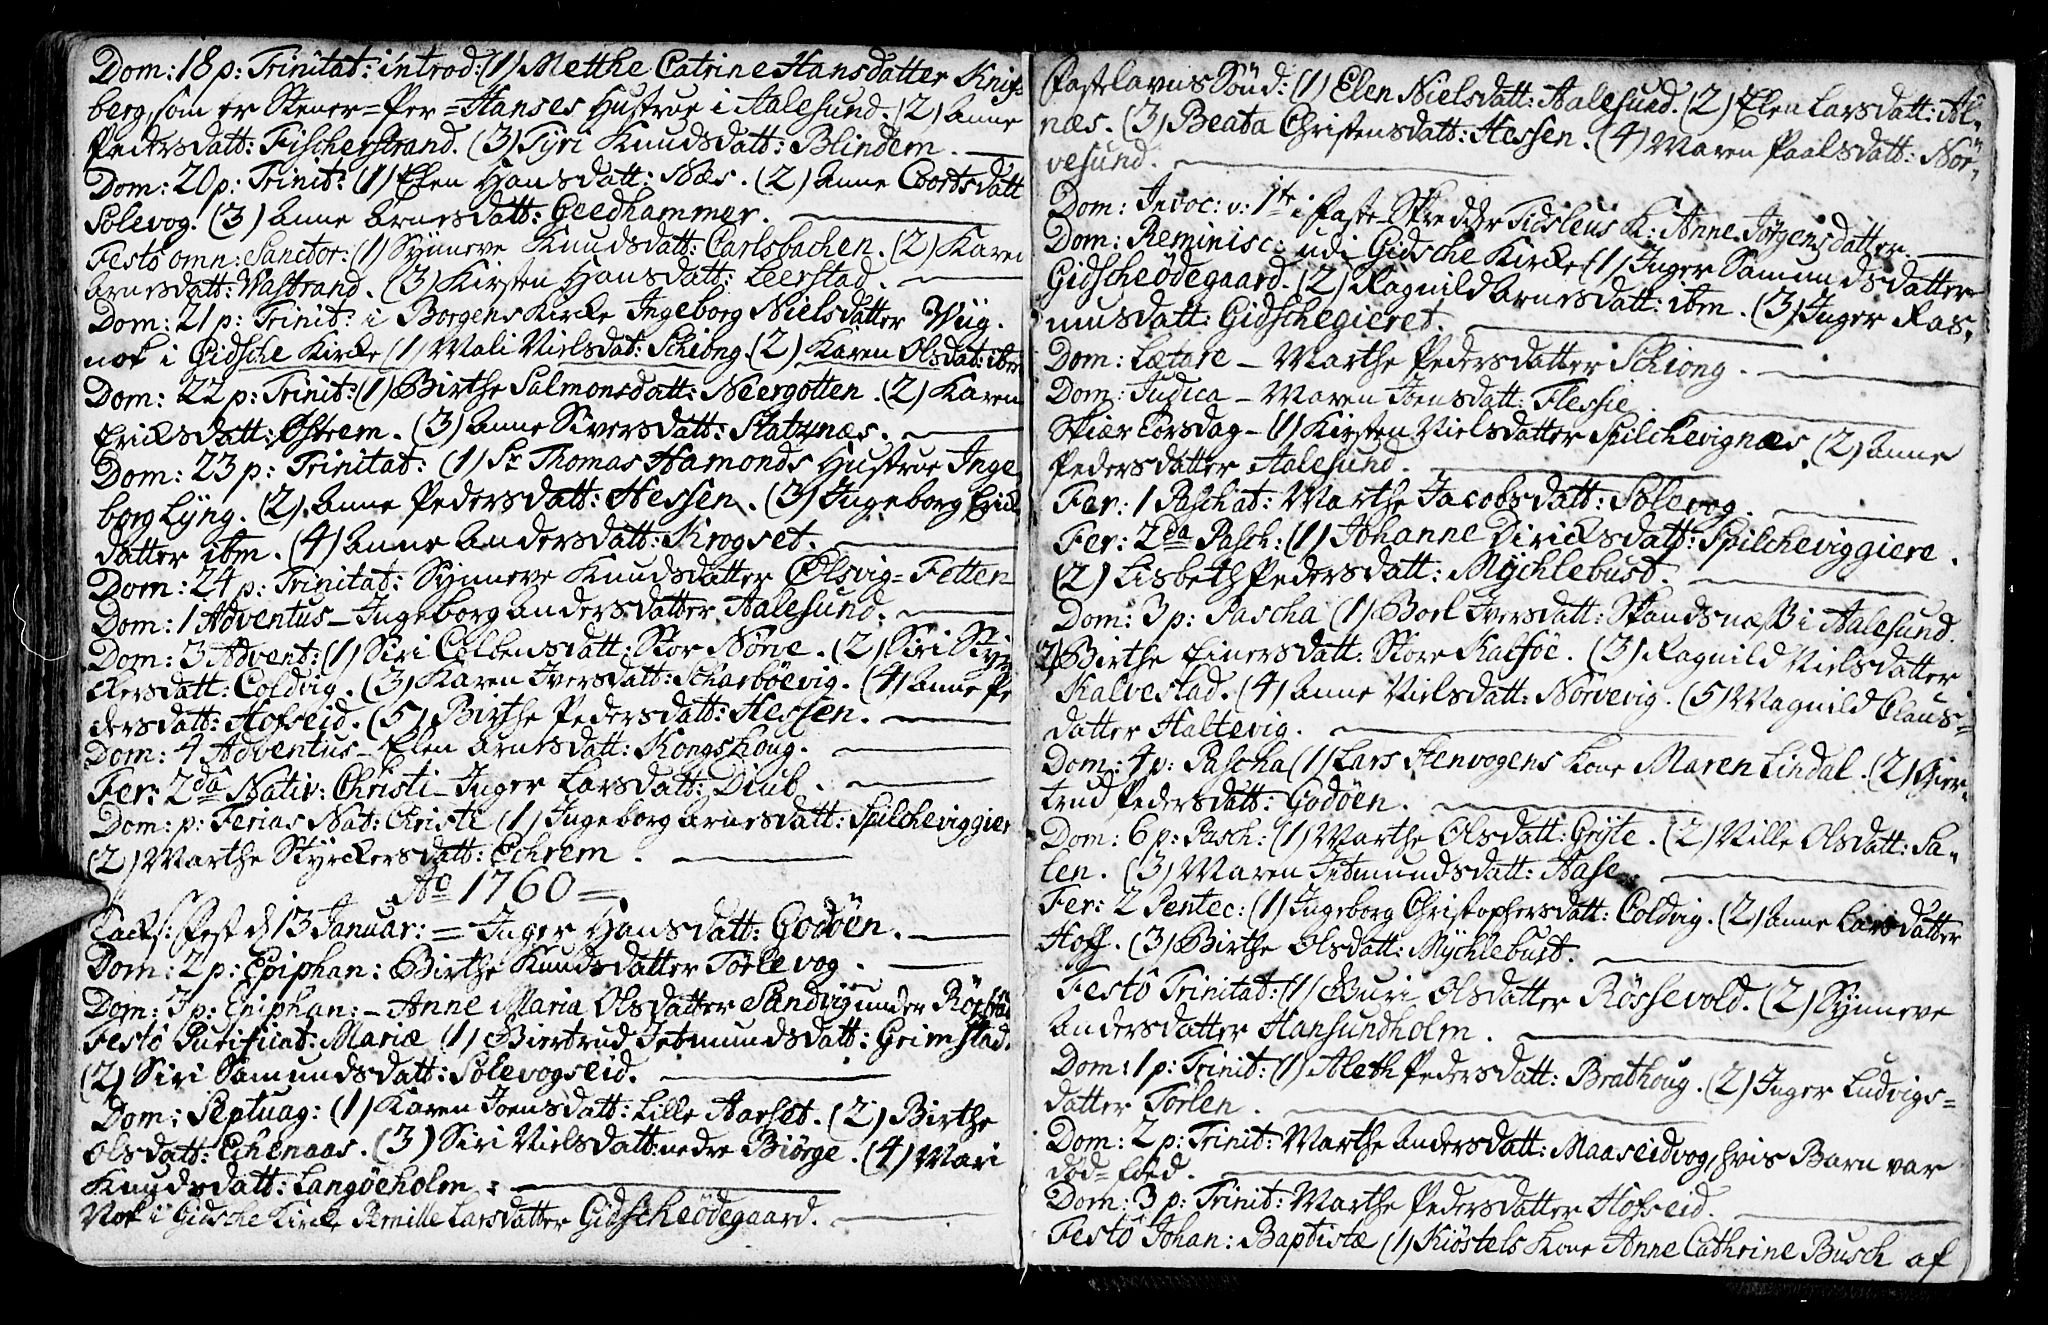 Dom: 18 p: Trinitat: introd: (1) Metthe Catrine Hansdatter
berg, som er Stener=Per=Hanses Hustrue i Aalesund. (2) Anne
Pedersdatt: Fischerstrand. (3) Gyri Knudsdatt: Blindem.
Dom: 20 p: Trinit: (1) Elen Hansdatt: Næs. (2) Anne Coortsdatt
Solevog. (3) Anne Arnesdatt: Geedhammer.
Festo omn: Sanctor: (1) Synneve Knudsdatt: Carlsbachen. (2) Karen
Arnesdatt: Vastrand. (3) Kirsten Hansdatt: Leerstad.
Dom: 21 p: Trinit: i Borgens Kircke Ingeborg Nielsdatter Wiig.
nok i Gidsche Kirke (1) Mali Nielsdat: Schiong. (2) Karen Olsdat: ibm
Dom: 22 p: Trinit: (1) Birthe Salmonsdatt: Neergotten. (2) Karen
Ericksdatt: Østrem. (3) Anne Siversdatt: Slatnæs.
Dom: 23 p: Trinitat: (1) Sr Thomas Hamonds Hustrue Inge
borg Lyng. (2) Anne Pedersdatt: Hessen. (3) Ingeborg Erick
datter ibm. (4) Anne Andersdatt: Krogset.
Dom: 24 p: Trinitat: Synneve Knudsdatter Olsvig=Fetten
Dom: 1 Adventus – Ingeborg Andersdatter Aalesund.
Dom: 3 Advent: (1) Siri Colbensdatt: Stor Nöne. (2) Siri Styr
ckersdatt: Coldvig. (3) Karen Iversdatt: Scharböevig. (4) Anne Pe
dersdatt: Hofseid. (5) Birthe Pedersdatt: Hessen.
Dom: 4 Adventus – Elen Arnesdatt: Kongshoug.
Fer: 2da Nativ: Christi – Inger Larsdatt: Diub.
Dom: p: Ferias Nat: Christi (1) Ingeborg Arnesdatt: Spilcheviggier
(2) Marthe Styrckersdatt: Echrem.
Ao 1760 =
Tacks: Fest d 13 Januar: = Inger Hansdatt: Godöen.
Dom: 2 p: Epiphan: Birthe Knudsdatter Törlevog.
Dom: 3 p: Epiphan: – Anne Maria Olsdatter Sandvig under
Festo Purificat: Mariæ (1) Giertrud Jetmundsdatt: Grimstad.
(2) Siri Samundsdatt: Solevogseid.
Dom: Septuag: (1) Karen Joensdatt: Lille Aarset. (2) Birthe
Olsdatt: Echenaas. (3) Siri Nielsdatt: nedre Biörge. (4) Mari
Knudsdatt: Langöeholm:
Nok i Gidsche Kircke Pernille Larsdatter Gidscheödegaard.
Fastelavns Sönd: (1) Elen Nielsdatt: Aalesund. (2) Elen Larsdatt: Al-
næs. (3) Beata Christensdatt: Hessen. (4) Maren Paalsdatt: Nör-
vesund.
Dom: Invoc: v: 1te i Faste Skredder Tidsleus K: Anne Jörgensdatter.
Dom: Reminisc: udi Gidsche Kircke (1) Inger Samundsdatter
Gidscheödegaard. (2) Ragnild Arnesdatt: ibm. (3) Inger Ras-
musdatt: Gidschegieret.
Dom: Lætare – Marthe Pedersdatter Schiong.
Dom: Judica – Maren Joensdatt: Flessie.
Skiær Torsdag – (1) Kirsten Nielsdatter Spilchevignæs. (2) Anne
Pedersdatter Aalesund.
Fer: 1 Paschat: Marthe Jacobsdatt: Solevog.
Fer: 2da Pasch: (1) Johanne Diricksdatt: Spilcheviggiere.
(2) Lisbeth Pedersdatt: Mychlebust.
Dom: 3 p: Pascha (1) Boel Iversdatt: Skandsnæss i Aalesund.
2) Birthe Einersdatt: Store Kalföe. (3) Ragnild Nielsdatter
Kalvestad. (4) Anne Nielsdatt: Nörvevig. (5) Magnild Claus=
datter Haltevig.
Dom: 4 p: Pascha (1) Lars Stenvogens Kone Maren Lindal. (2) Gier-
trud Pedersdatt: Godöen.
Dom: 6 p: Pasch: (1) Marthe Olsdatt: Gryte. (2) Nille Olsdatt: Sa-
len. (3) Maren Jetmundsdatt: Aase.
Fer: 2 Pentec: (1) Ingeborg Christophersdatt: Coldvig. (2) Anne Larsdatter
Hoff. (3) Birthe Olsdatt: Mychlebust.
Festo Trinitat: (1) Guri Olsdatter Rössevold. (2) Synneve
Andersdatter Hansundholm.
Dom: 1 p: Trinit: (1) Aleth Pedersdatt: Brathoug. (2) Inger Ludvigs=
datter Törlen.
Dom: 2 p: Trinit: Marthe Andersdatt: Maaseidvog, hvis Barn var
död=föed.
Dom: 3 p: Trinit: Marthe Pedersdatter Hofseid.
Festo Johan: Baptistæ (1) Kiöstels Kone Anne Cathrine Busch af